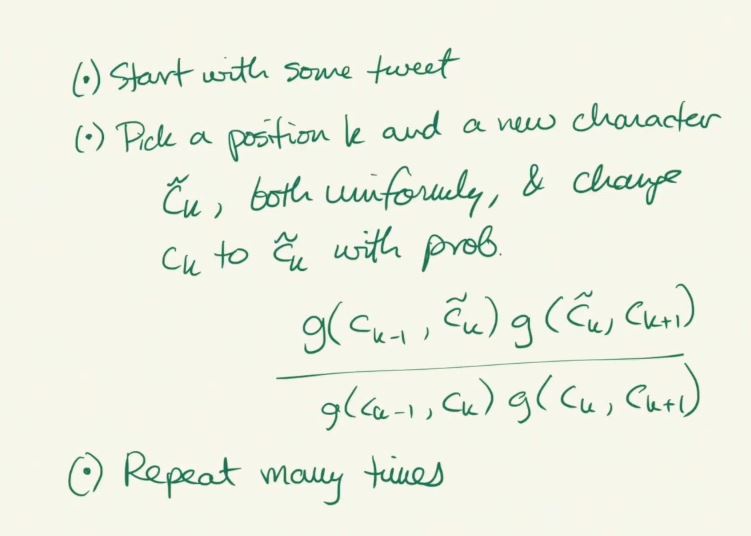 (•) Start with some tweet
(•) Pick a position k and a new character
c̃ₖ, both uniformly, & change
cₖ to c̃ₖ with prob.
g(cₖ₋₁, c̃ₖ) g(c̃ₖ, cₖ₊₁)
g(cₖ₋₁, cₖ) g(cₖ, cₖ₊₁)
(•) Repeat many times